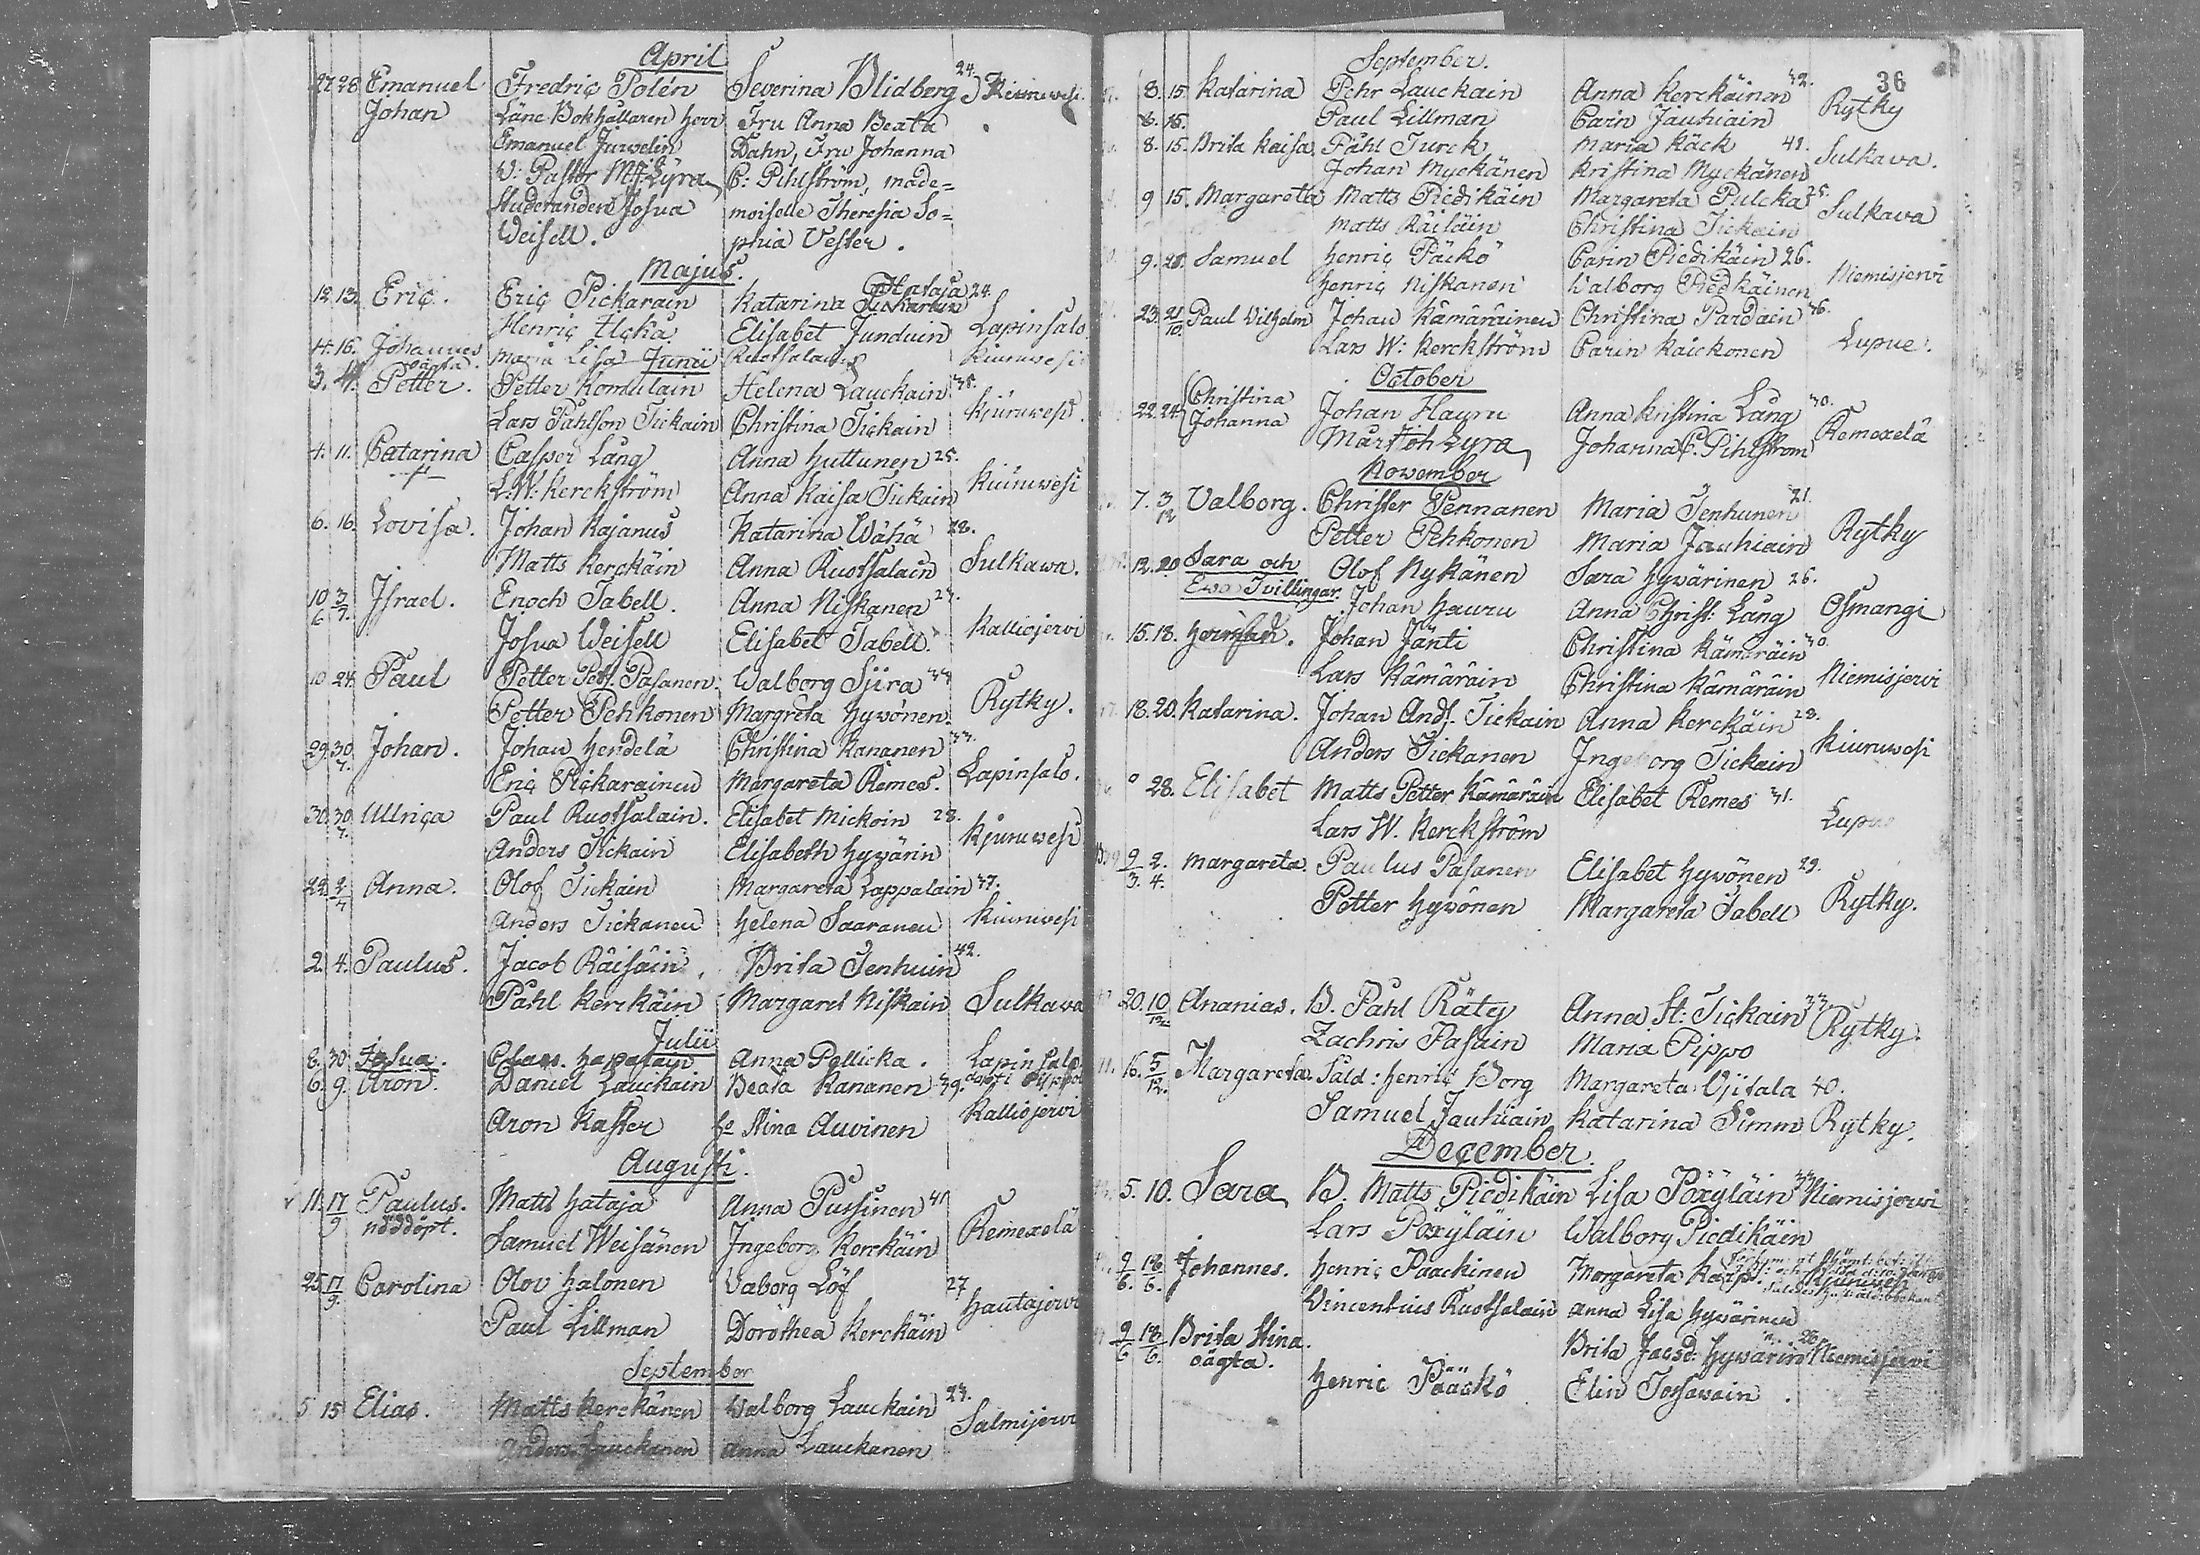 April
27 28 Emanuel Fredric Polén Severina Blidberg 24. Kiuruwesi
Johan Läne Bokhållaren herr Fru Anna Beata
Emanuel Juwelin Dahn, Fru Johanna
V: Pastor M: J: Lyra C: Pihlström, made=
Studeranden Josua moiselle Theresia So=
Weisell. phia Vester.
Majus.
12. 13. Eric. Eric Pickarain Katarina Hataja 24.
Henric Elisabet Junduin Lapinsalo
14. 16. Johannes Maria Lisa Ruotsalain Kiuruwesi
oägta.
Junii
3. Petter. Petter Komulain Helena Lauckain 35.
Lars Påhlson Tickain Christina Tickain Kjuruwesi.
4. 11. Catarina Casper Lång Anna Huttunen 25.
L: W: Kerckström Anna Kaisa Tickain Kiuruwesi
6. 16. Lovisa. Johan Kajanus Katarina Wähä 28.
Matts Kerckäin Anna Ruotsalain Sulkawa.
10/6 3/7. Israel. Enoch Tabell. Anna Niskanen
Josua Weisell Elisabet Tabell. Kalliojervi
10 24. Paul Petter Pet. Pasanen. Walborg Sjira
Petter Pehkonen Margreta Hyvönen. Rytky.
29. 30/7. Johan. Johan Hendelä Christina Kananen 33.
Eric Pickarainen Margareta Remes. Lapinsalo.
30. 30/7. Ullrica Paul Ruotsalain. Elisabet Mickoin 28.
Anders Tickain Elisabeth Hyvärin Kjuruwesi
22. 2/7 Anna. Olof Tickain Margareta Lappalain 37.
Anders Tickanen Helena Saaranen Kiuruwesi
2. 4. Paulus. Jacob Räisäin Brita Tenhuin 42.
Påhl Kerckäin Margaret Niskain Sulkawa
Julii
8. 30. Josua. Anna Pellicka. Lapinsalo
6. 9. Aron. Daniel Lauckain Beata Kananen 39.
Aron Kaster Stina Auvinen Kalliojervi
Augusti.
11. 17/9 Paulus. Matts Hataja Anna Pussinen 41
nöddöpt. Samuel Weisänen Ingeborg Kerckäin Remexelä
25. 17/9. Carolina Olov Halonen Vaborg Löf 27
Paul Lillman Dorothea Kerckäin Hautajervi
September
5 15 Elias. Matts Kerckänen Walborg Lauckain 23.
Anders Lauckanen Anna Lauckanen Salmijervi
36
September.
8. 15. Katarina Pehr Lauckain Anna Kerckäinen 32.
8. 15. Paul Lillman Carin Jauhiain Rytky
8. 15. Brita Kaisa Påhl Turck Maria Käck 41.
Johan Myckänen Kristina Myckänen Sulkava.
9 15. Margareta Matts Piedikäin Margareta Pulcka 25.
Matts Räiläin Christina Tickain Sulkava
9. 28. Samuel Henric Päckö Carin Piedikäin 26.
Henric Niskanen Walborg Piedkäinen Niemisjervi
23. 21/10. Paul Vilhelm Johan Kämäräinen Christina Pardain 36.
Lars W: Kerckström Carin Kaickonen Lupue.
October
22. 24. Christina Johan Hauru Anna Kristina Lång 30.
Johanna Mårt: Joh Lyra Johanna C. Pihlström Remexelä
November
7. 3/12 Valborg. Christer Pennanen Maria Tenhunen 21.
Petter Pehkonen Maria Jauhiain Rytky
12. 20 Sara och Olof Nykänen Sara Hyvärinen 26.
Ewa Tvillingar. Johan Hauru Anna Christ: Lång Osmangi
15. 18. Herman. Johan Jänti Christina Kämäräin
Lars Kämäräin Christina Kämäräin Niemisjervi
18. 20. Katarina. Johan And. Tickain Anna Kerckäin 23.
Anders Tickanen Ingeborg Tickain Kiuruwesi
28. Elisabet Matts Petter Kämäräin Elisabet Remes 31.
Lars W. Kerckström Lupue
9/3. 2/4. Margareta. Paulus Pasanen Elisabet Hyvönen 29.
Petter Hyvönen Margareta Tabell Rytky.
20. 10/12 Ananias. B. Påhl Räty Anna St: Tickain 33
Zachris Pasain Maria Pippo Rytky.
16. 5/12. Margareta. Sald: Henric Borg Margareta Vjitala 40.
Samuel Jauhiain Katarina Simm Rytky.
December.
5. 10. Sara B. Matts Piedikäin Lisa Pöxyläin 33 Niemisjervi
Lars Pöxyläin Walborg Piedikäin
9/6. 18/6. Johannes. Henric Paackinen Margareta Karp. Kjuruwesi
Vincentius Ruotsalain Anna Lisa Hyvärinen
9/6 18/6. Brita Stina. Brita Jacsd: Hyvärin 26. Niemisjervi
oägta. Henric Pääckö Elin Tossavain.